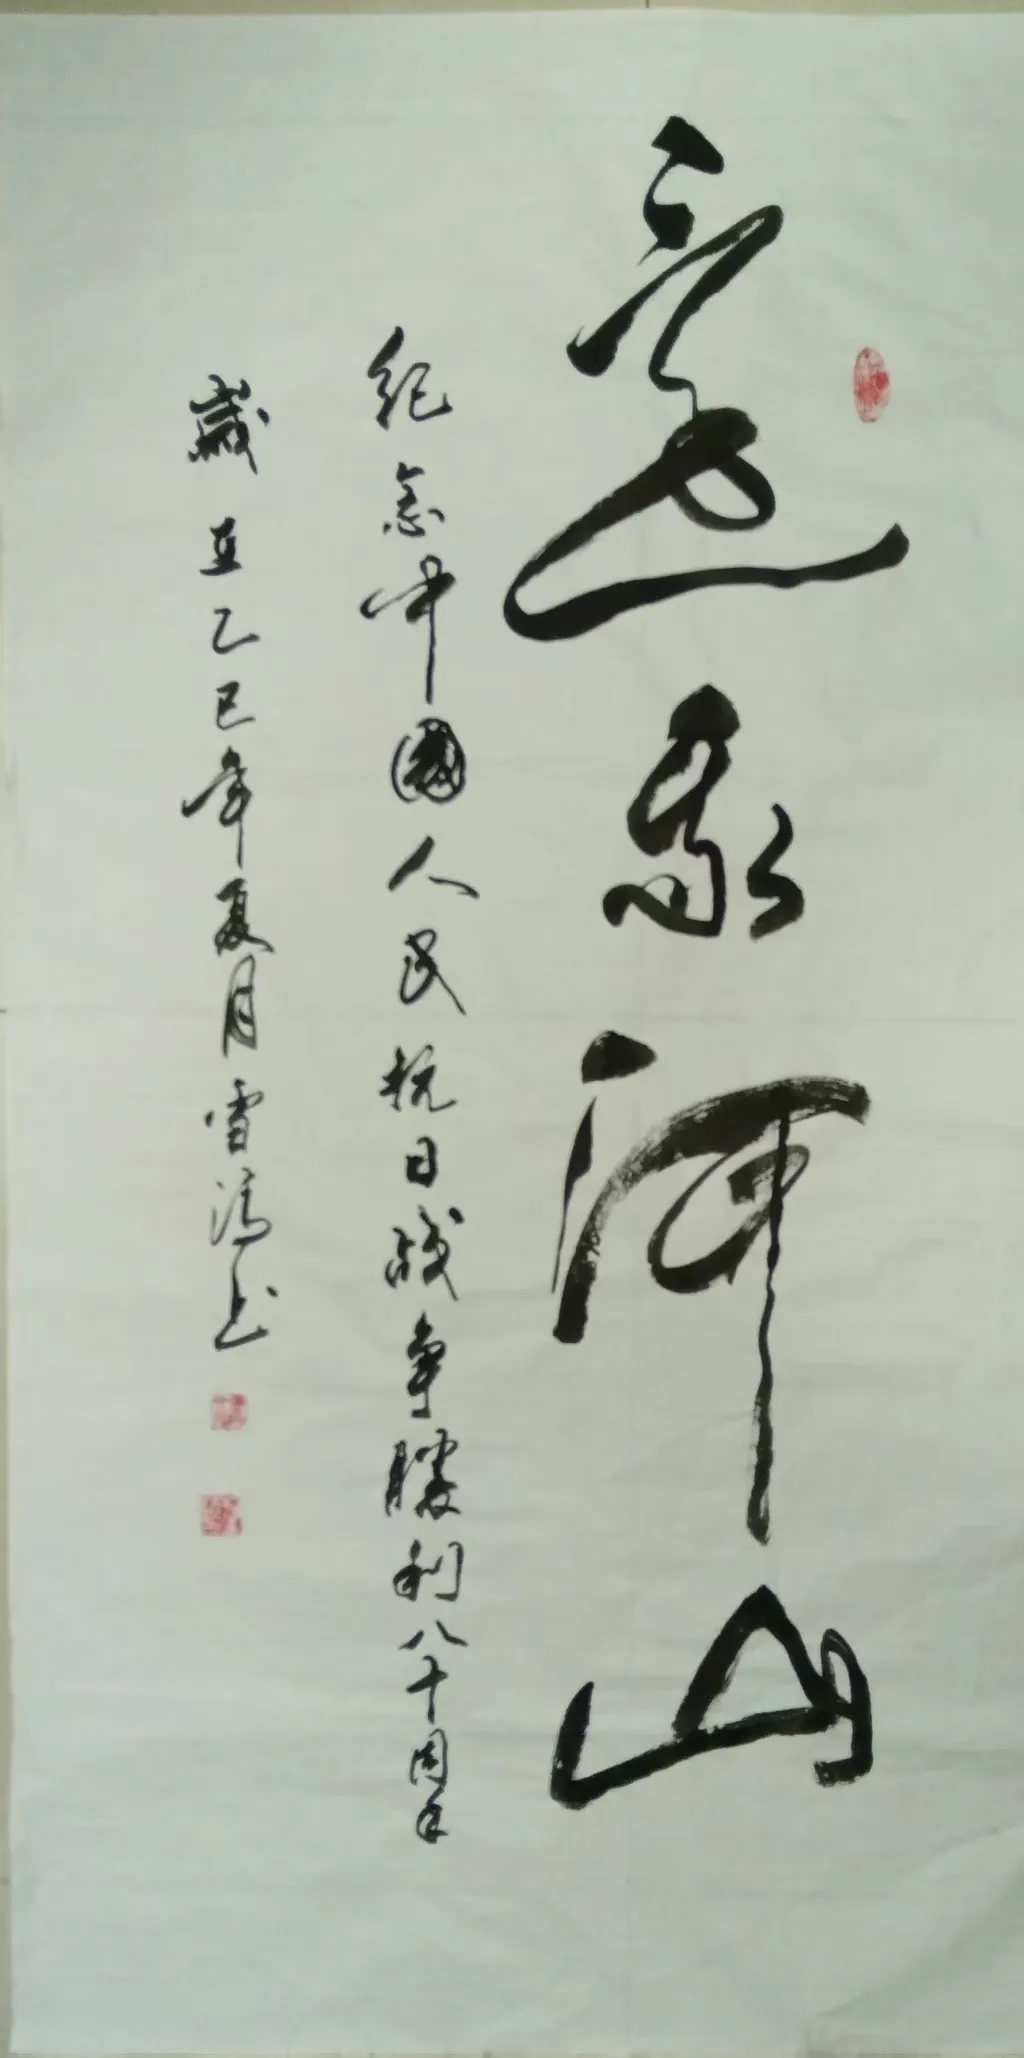 还我河山
纪念中國人民抗日战争勝利八十周年
歲在乙巳年夏月雪涛书